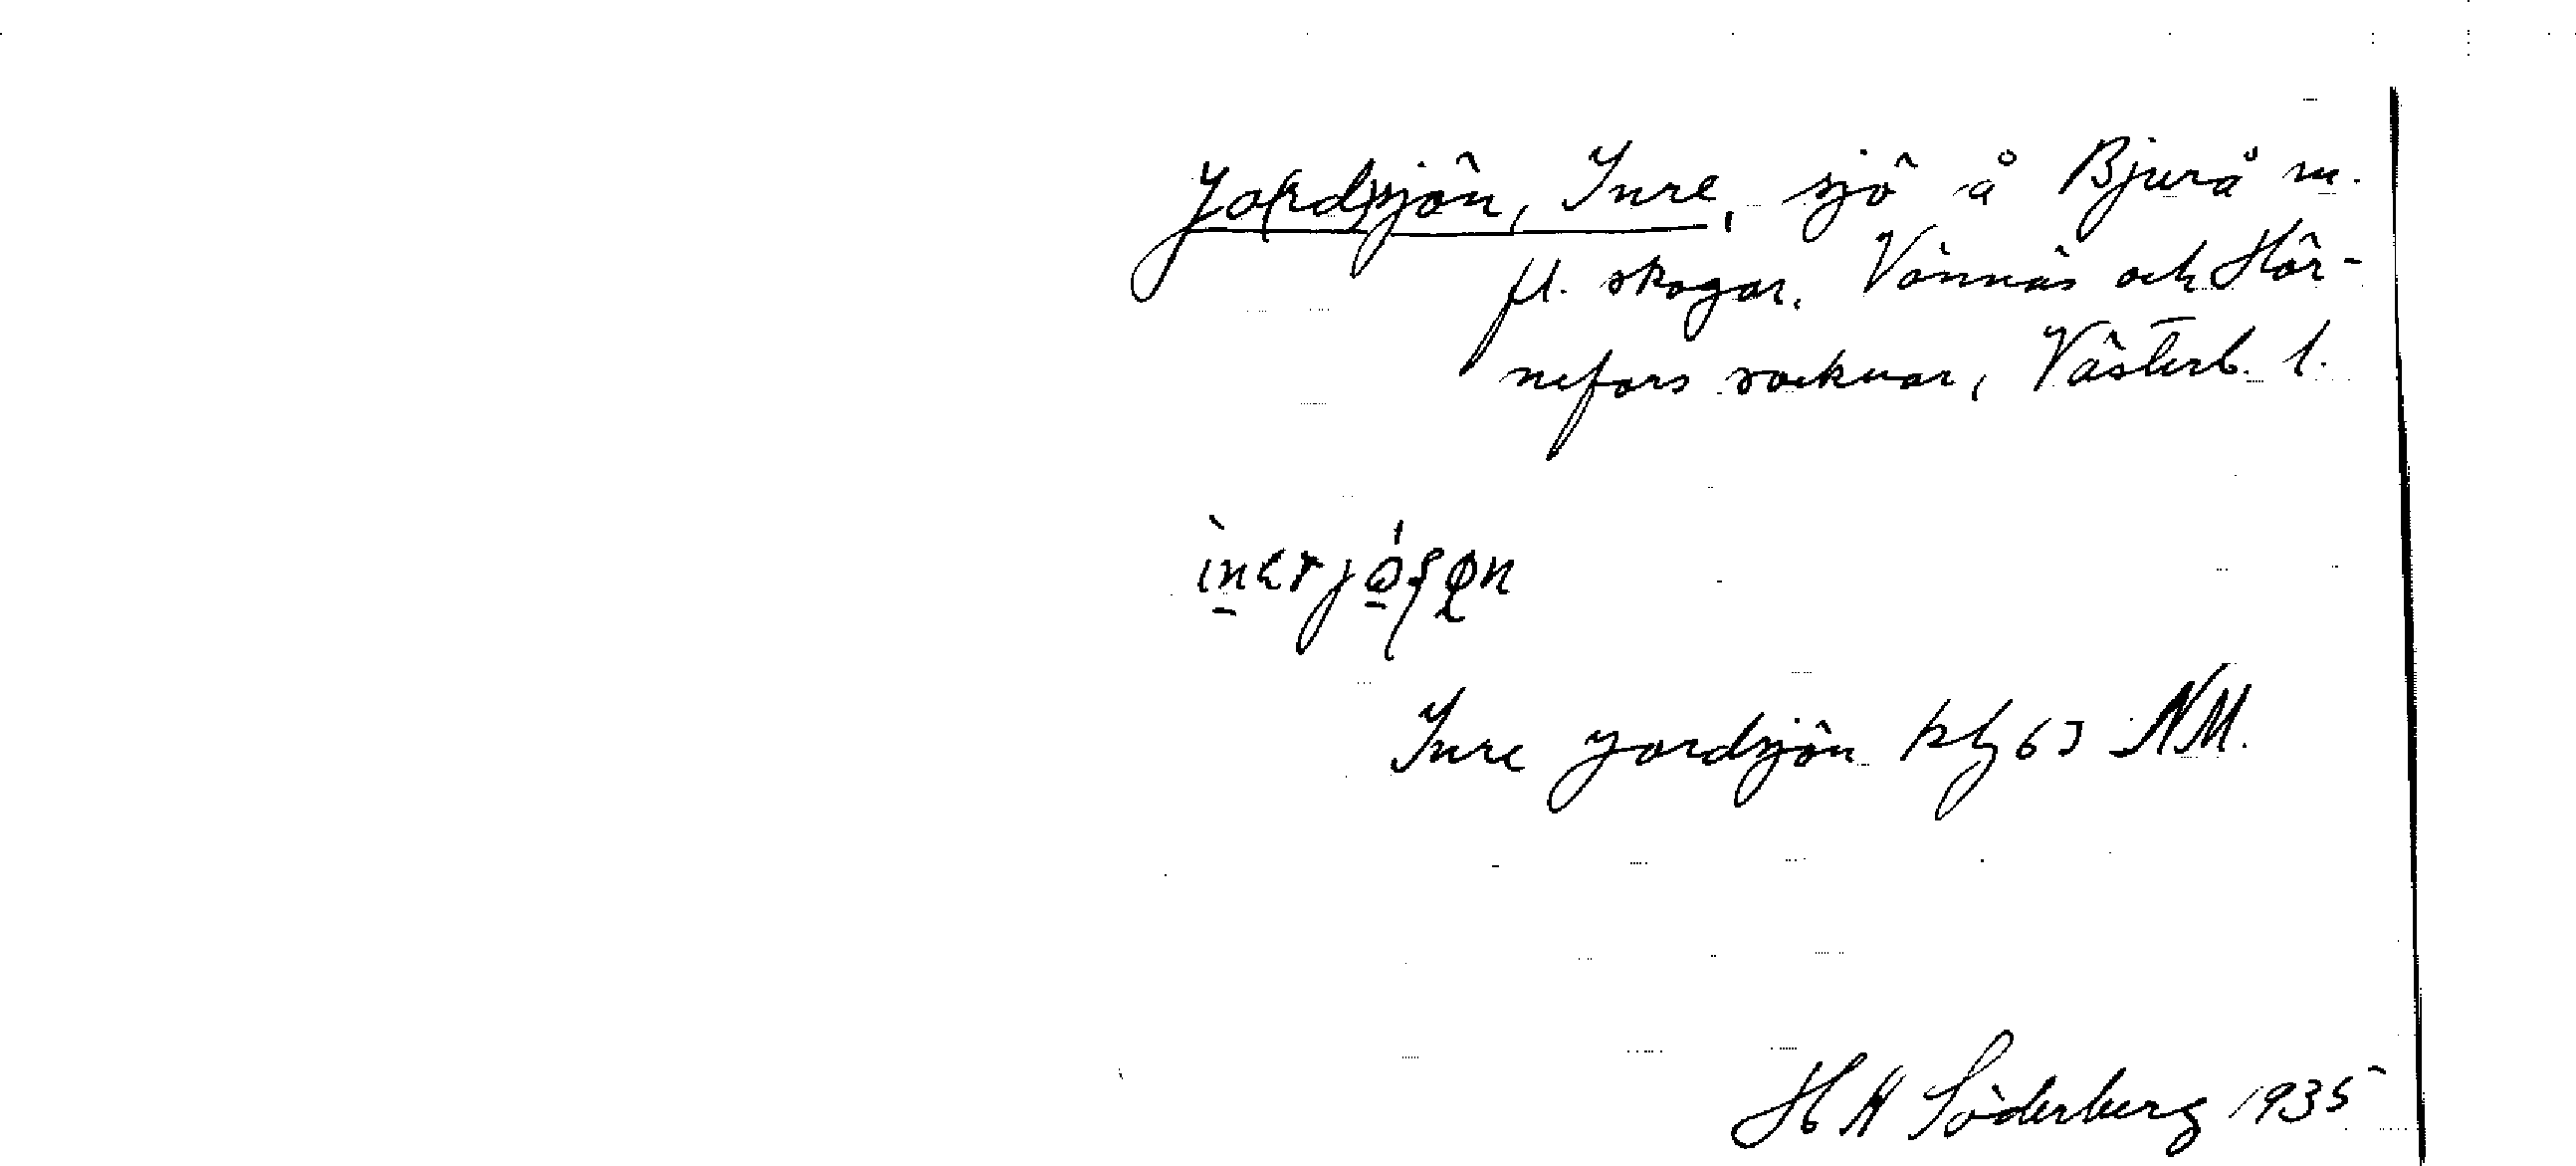 Jo(rd)sjön, Inre, sjö å Bjurå m.
fl. skogar. Vännäs och Hör-
nefors socknar, Västerb. l.
Inre Jordsjön kbl 63 NM.
H A Söderberg 1935